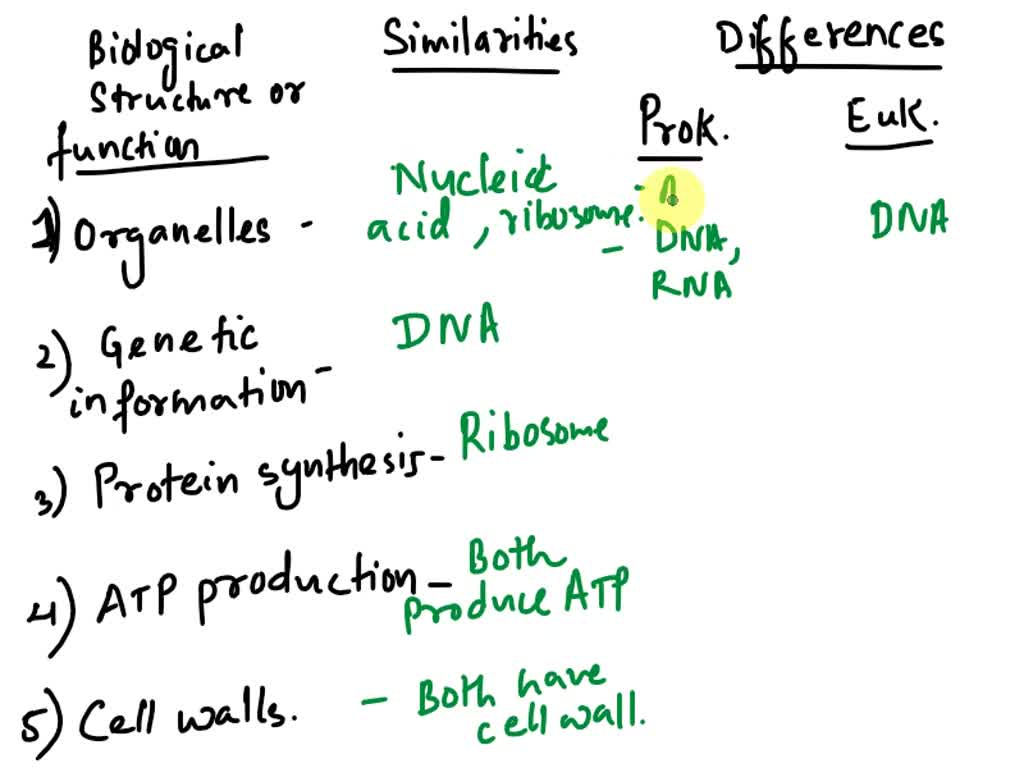 Biological Structure or function
Similarities
Differences
Prok.
Euk.
1) Organelles -
Nucleic acid, ribosome.
- DNA, RNA
DNA
2) Genetic information -
DNA
3) Protein synthesis -
Ribosome
4) ATP production -
Both produce ATP
5) Cell walls.
- Both have cell wall.